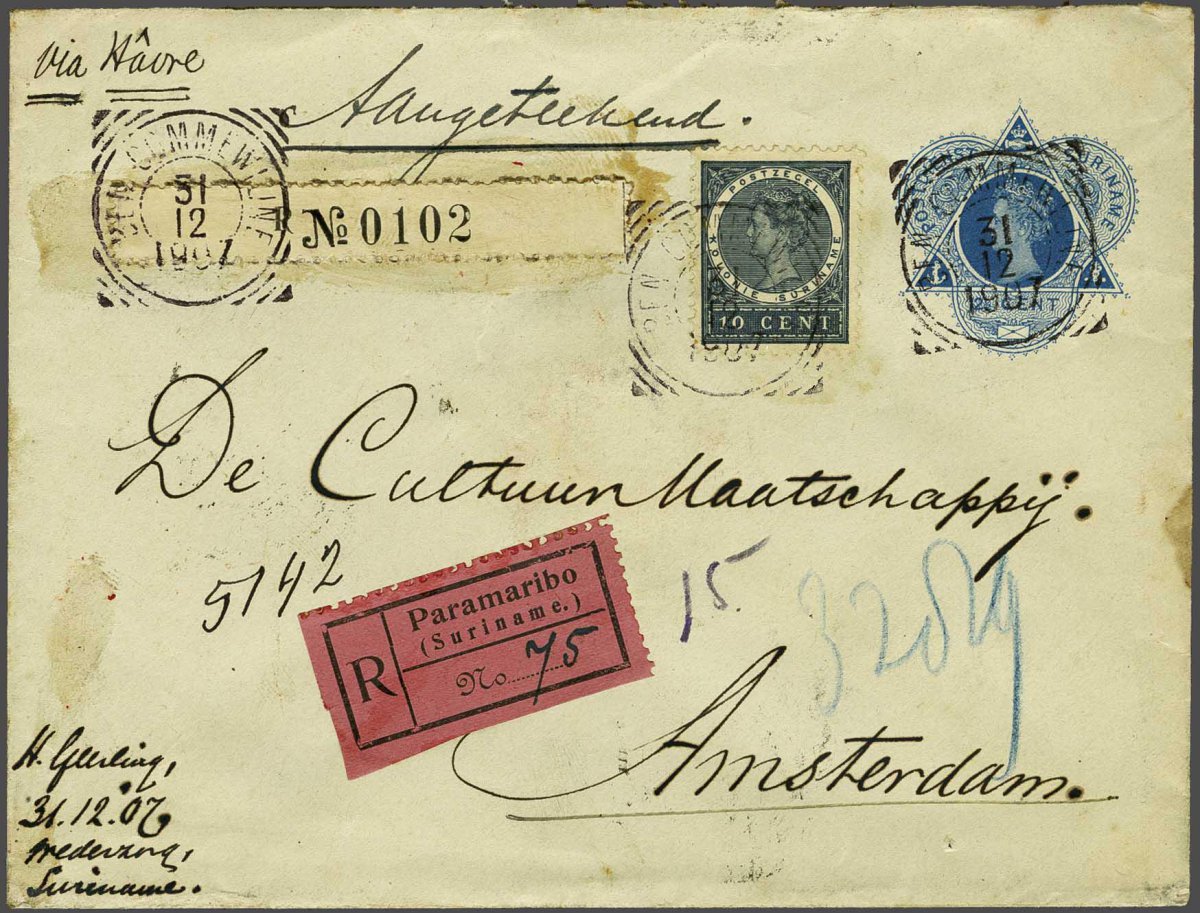 via Hâvre
Aangeteekend.
BEN COMMEWIJNE
31
12
1907
R
№ 0102
POSTZEGEL
KOLONIE SURINAME
10 CENT
BEN
12
1907
POST
SURINAME
CENT
COMMEWIJNE
31
12
1907
De Cultuur Maatschappij.
5142
Paramaribo
(Suriname.)
R
No. 75
15.
Amsterdam.
H. Geerling,
31.12.07,
Vrederzorg,
Suriname.